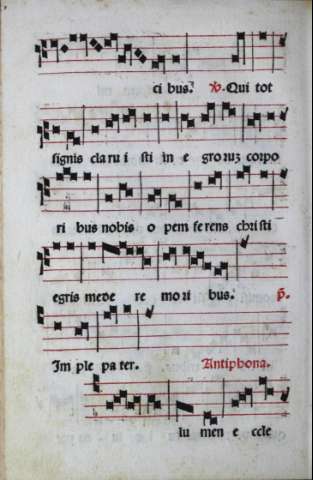 ci bus. ℣. Qui tot
signis cla ru i sti in e gro ruꝫ corpo
ri bus nobis o pem fe rens christi
egris mede re mo ri bus. ℟.
Im ple pa ter. Antiphona.
lu men e ccle